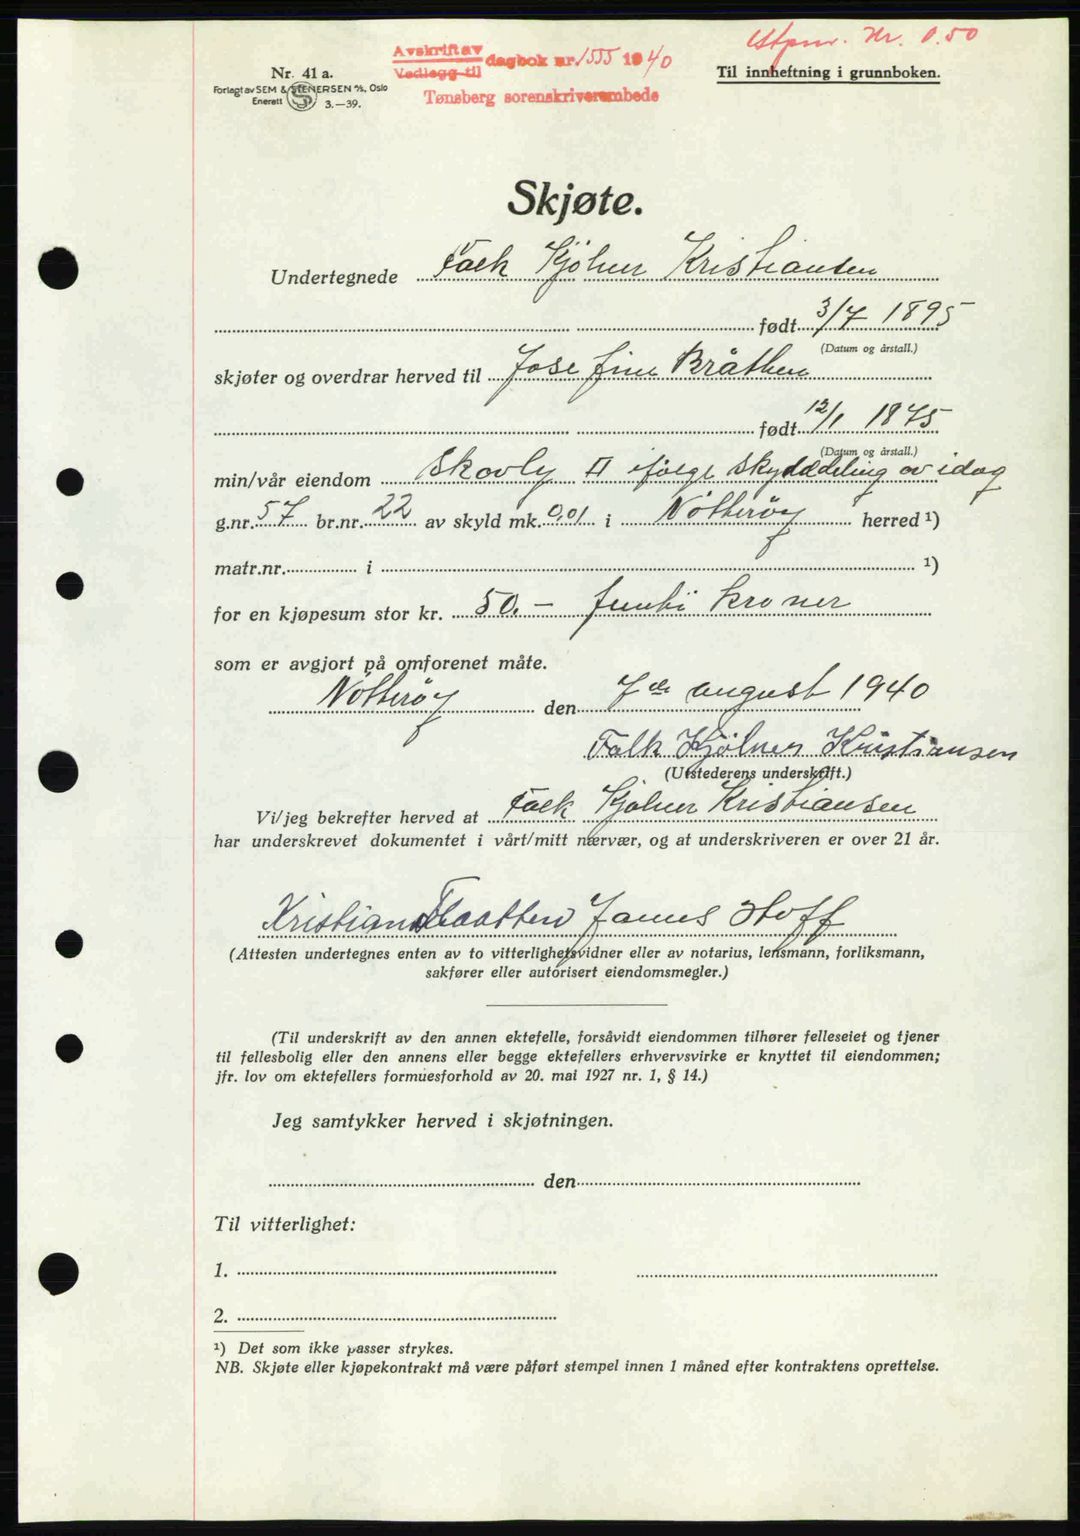 Stpm. kr. 0.50
Avskrift av
Vedlegg til dagbok nr. 1555 1940
Tønsberg sorenskriverembede
Nr. 41 a.
Forlagt av SEM & STENERSEN A/S, Oslo
Enerett S 3.—39.
Til innheftning i grunnboken.
Skjøte.
Undertegnede Falk Kjölner Kristiansen
født 3/7 1895
(Datum og årstall.)
skjøter og overdrar herved til Josefine Bråthen
født 12/1 1875
(Datum og årstall.)
min/vår eiendom Skovly II ifølge skylddeling av idag
g.nr. 57 br.nr. 22 av skyld mk. 0,01 i Nötteröy herred ¹)
matr.nr. i ¹)
for en kjøpesum stor kr. 50.- femti kroner
som er avgjort på omforenet måte.
Nötteröy den 7de august 1940
Falk Kjölner Kristiansen
(Utstederens underskrift.)
Vi/jeg bekrefter herved at Falk Kjölner Kristiansen
har underskrevet dokumentet i vårt/mitt nærvær, og at underskriveren er over 21 år.
Kristian Flaatten James Hoff
(Attesten undertegnes enten av to vitterlighetsvidner eller av notarius, lensmann, forliksmann,
sakfører eller autorisert eiendomsmegler.)
(Til underskrift av den annen ektefelle, forsåvidt eiendommen tilhører felleseiet og tjener
til fellesbolig eller den annens eller begge ektefellers erhvervsvirke er knyttet til eiendommen;
jfr. lov om ektefellers formuesforhold av 20. mai 1927 nr. 1, § 14.)
Jeg samtykker herved i skjøtningen.
den
Til vitterlighet:
1.
2.
¹) Det som ikke passer strykes.
NB. Skjøte eller kjøpekontrakt må være påført stempel innen 1 måned efter kontraktens oprettelse.